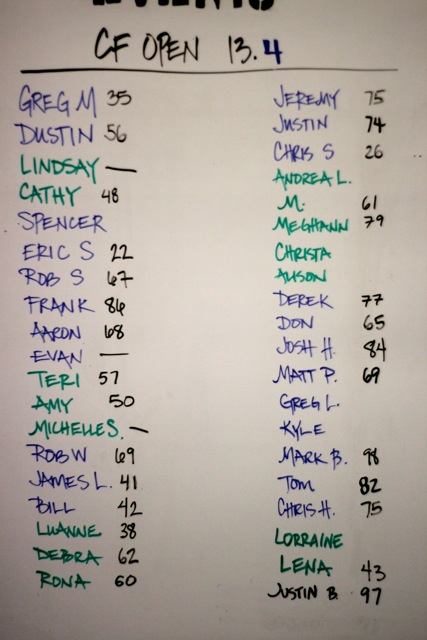 CF OPEN 13.4
GREG M 35
DUSTIN 56
LINDSAY —
CATHY 48
SPENCER
ERIC S 22
ROB S 67
FRANK 86
AARON 68
EVAN —
TERI 57
AMY 50
MICHELLE S. —
ROB W 69
JAMES L. 41
BILL 42
LUANNE 38
DEBRA 62
RONA 60
JEREMY 75
JUSTIN 74
CHRIS S 26
ANDREA L.
M. 61
MEGHANN 79
CHRISTA
ALISON
DEREK 77
DON 65
JOSH H. 84
MATT P. 69
GREG L.
KYLE
MARK B. 98
TOM 82
CHRIS H. 75
LORRAINE
LENA 43
JUSTIN B. 97